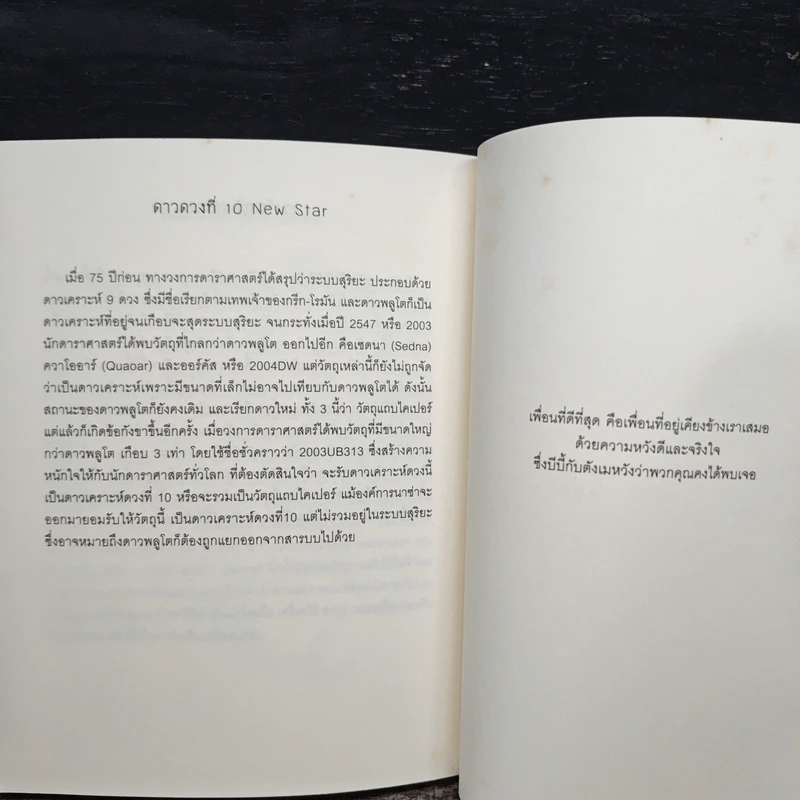 ดาวดวงที่ 10 New Star
เมื่อ 75 ปีก่อน ทางวงการดาราศาสตร์ได้สรุปว่าระบบสุริยะ ประกอบด้วย
ดาวเคราะห์ 9 ดวง ซึ่งมีชื่อเรียกตามเทพเจ้าของกรีก-โรมัน และดาวพลูโตก็เป็น
ดาวเคราะห์ที่อยู่จนเกือบจะสุดระบบสุริยะ จนกระทั่งเมื่อปี 2547 หรือ 2003
นักดาราศาสตร์ได้พบวัตถุที่ไกลกว่าดาวพลูโต ออกไปอีก คือเซดนา (Sedna)
ควาโออาร์ (Quaoar) และออร์คัส หรือ 2004DW แต่วัตถุเหล่านี้ก็ยังไม่ถูกจัด
ว่าเป็นดาวเคราะห์เพราะมีขนาดที่เล็กไม่อาจไปเทียบกับดาวพลูโตได้ ดังนั้น
สถานะของดาวพลูโตก็ยังคงเดิม และเรียกดาวใหม่ ทั้ง 3 นี้ว่า วัตถุแถบไคเปอร์
แต่แล้วก็เกิดข้อกังขาขึ้นอีกครั้ง เมื่อวงการดาราศาสตร์ได้พบวัตถุที่มีขนาดใหญ่
กว่าดาวพลูโต เกือบ 3 เท่า โดยใช้ชื่อชั่วคราวว่า 2003UB313 ซึ่งสร้างความ
หนักใจให้กับนักดาราศาสตร์ทั่วโลก ที่ต้องตัดสินใจว่า จะรับดาวเคราะห์ดวงนี้
เป็นดาวเคราะห์ดวงที่ 10 หรือจะรวมเป็นวัตถุแถบไคเปอร์ แม้องค์การนาซ่าจะ
ออกมายอมรับให้วัตถุนี้ เป็นดาวเคราะห์ดวงที่10 แต่ไม่รวมอยู่ในระบบสุริยะ
ซึ่งอาจหมายถึงดาวพลูโตก็ต้องถูกแยกออกจากสารบบไปด้วย
เพื่อนที่ดีที่สุด คือเพื่อนที่อยู่เคียงข้างเราเสมอ
ด้วยความหวังดีและจริงใจ
ซึ่งบีบี้กับตังเมหวังว่าพวกคุณคงได้พบเจอ